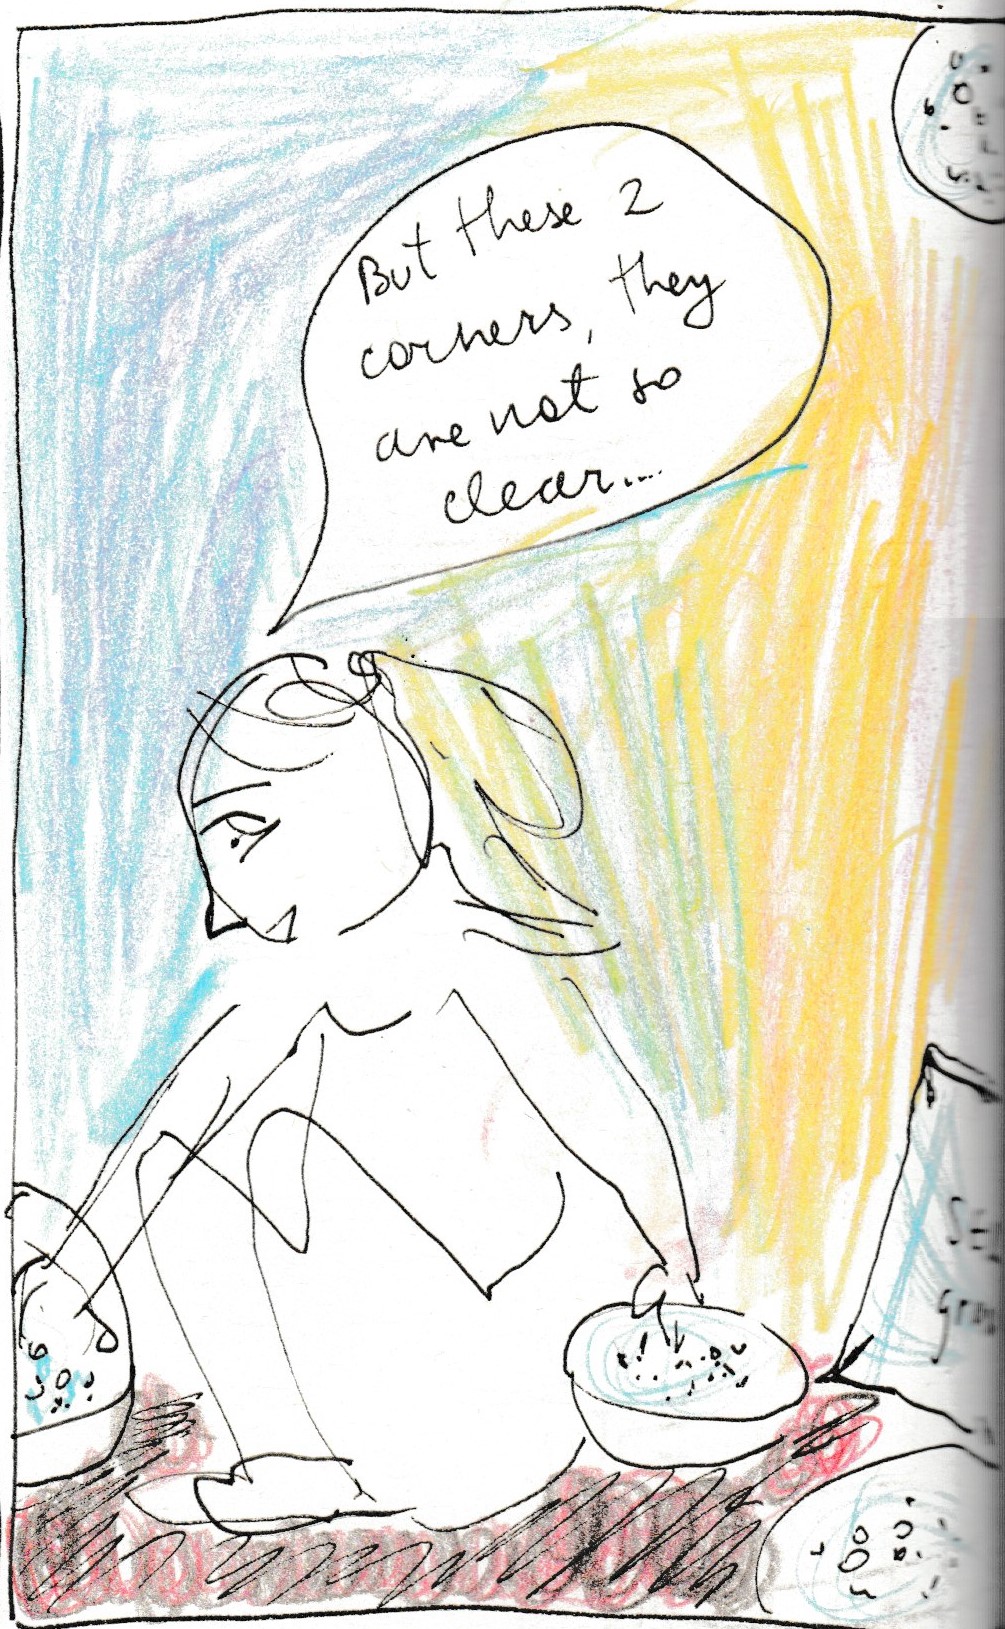 But these 2
corners, they
are not so
clear....